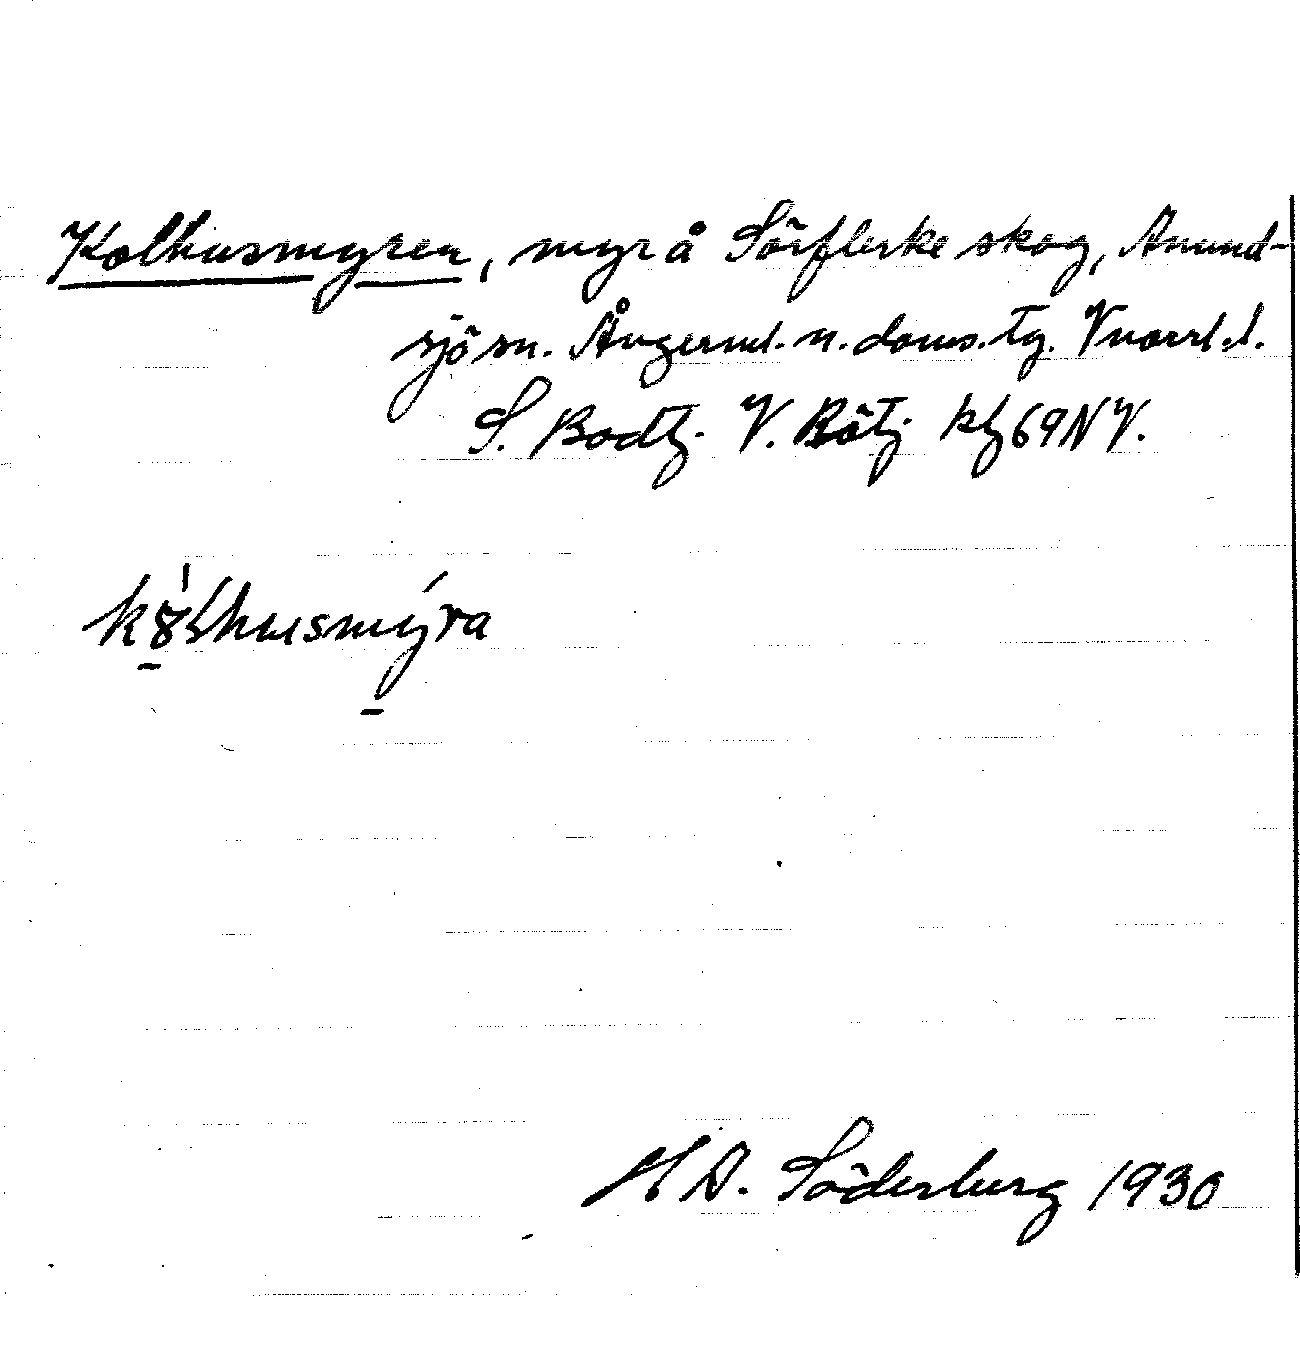 Kolhusmyren, myr å Sörflerke skog, Anund-
sjö sn. Ångerml. n. doms. tg. Vnorrl. l.
S. Bodtj. V. Rötj. kbl 69 NV.
husmyra
H D. Söderburg 1930